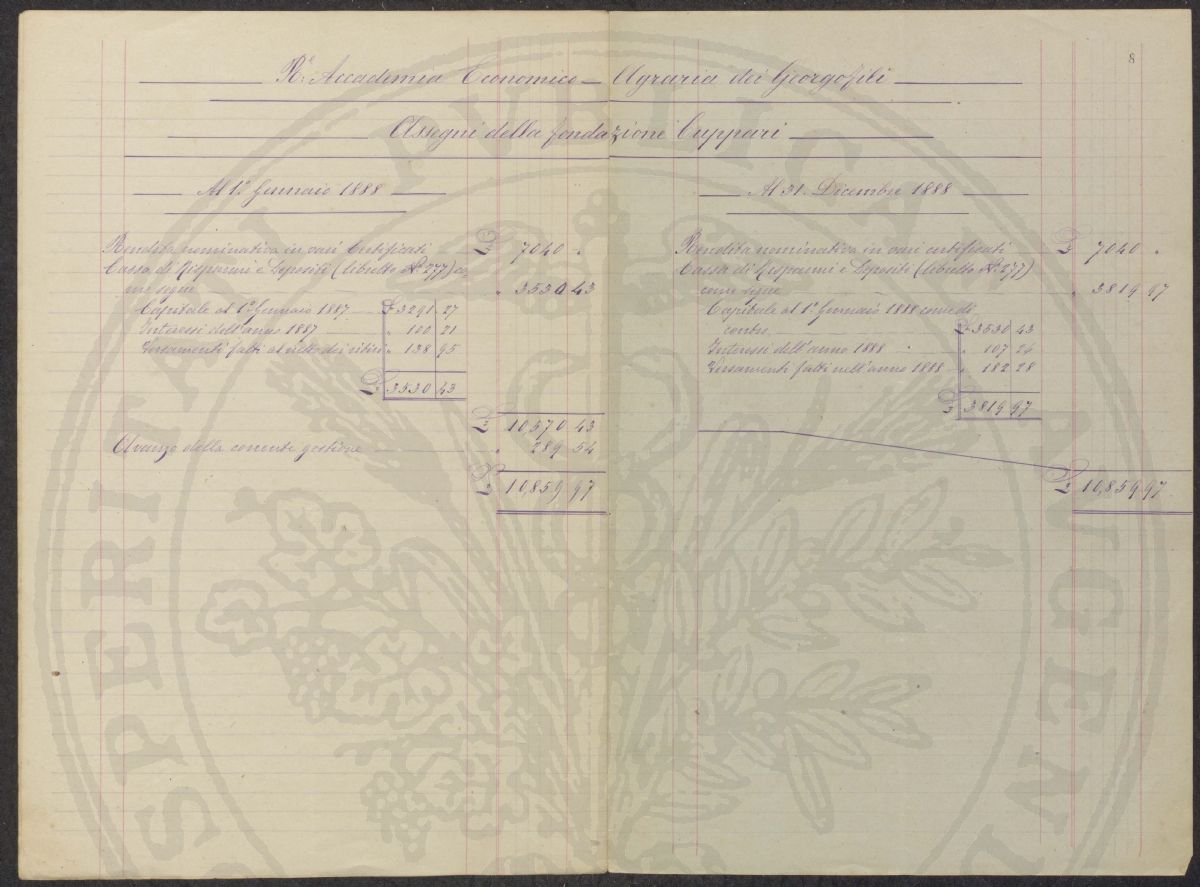 8
R.ª Accademia Economico-Agraria dei Georgofili
Assegni della fondazione Cuppari
Al 1º Gennaio 1888
Rendita nominativa in vari Certificati £ 7040 "
Cassa di Risparmi e Depositi (libretto Nº 277) co
me segue " 3530 43
Capitale al 1º Gennaio 1887 £ 3291 27
Interessi dell'anno 1887 " 100 21
Versamenti fatti al netto dei ritiri " 138 95
£ 3530 43
£ 10570 43
Avanzo della corrente gestione " 289 54
£ 10,859 97
Al 31 Decembre 1888
Rendita nominativa in vari certificati £ 7040 "
Cassa di Risparmi e Depositi (libretto Nº 277)
come segue " 3819 97
Capitale al 1º Gennaio 1888 come di
contro £ 3530 43
Interessi dell'anno 1888 " 107 26
Versamenti fatti nell'anno 1888 " 182 28
£ 3819 97
£ 10,859 97
PROSPERITATI PUBLICAE AUGENDAE